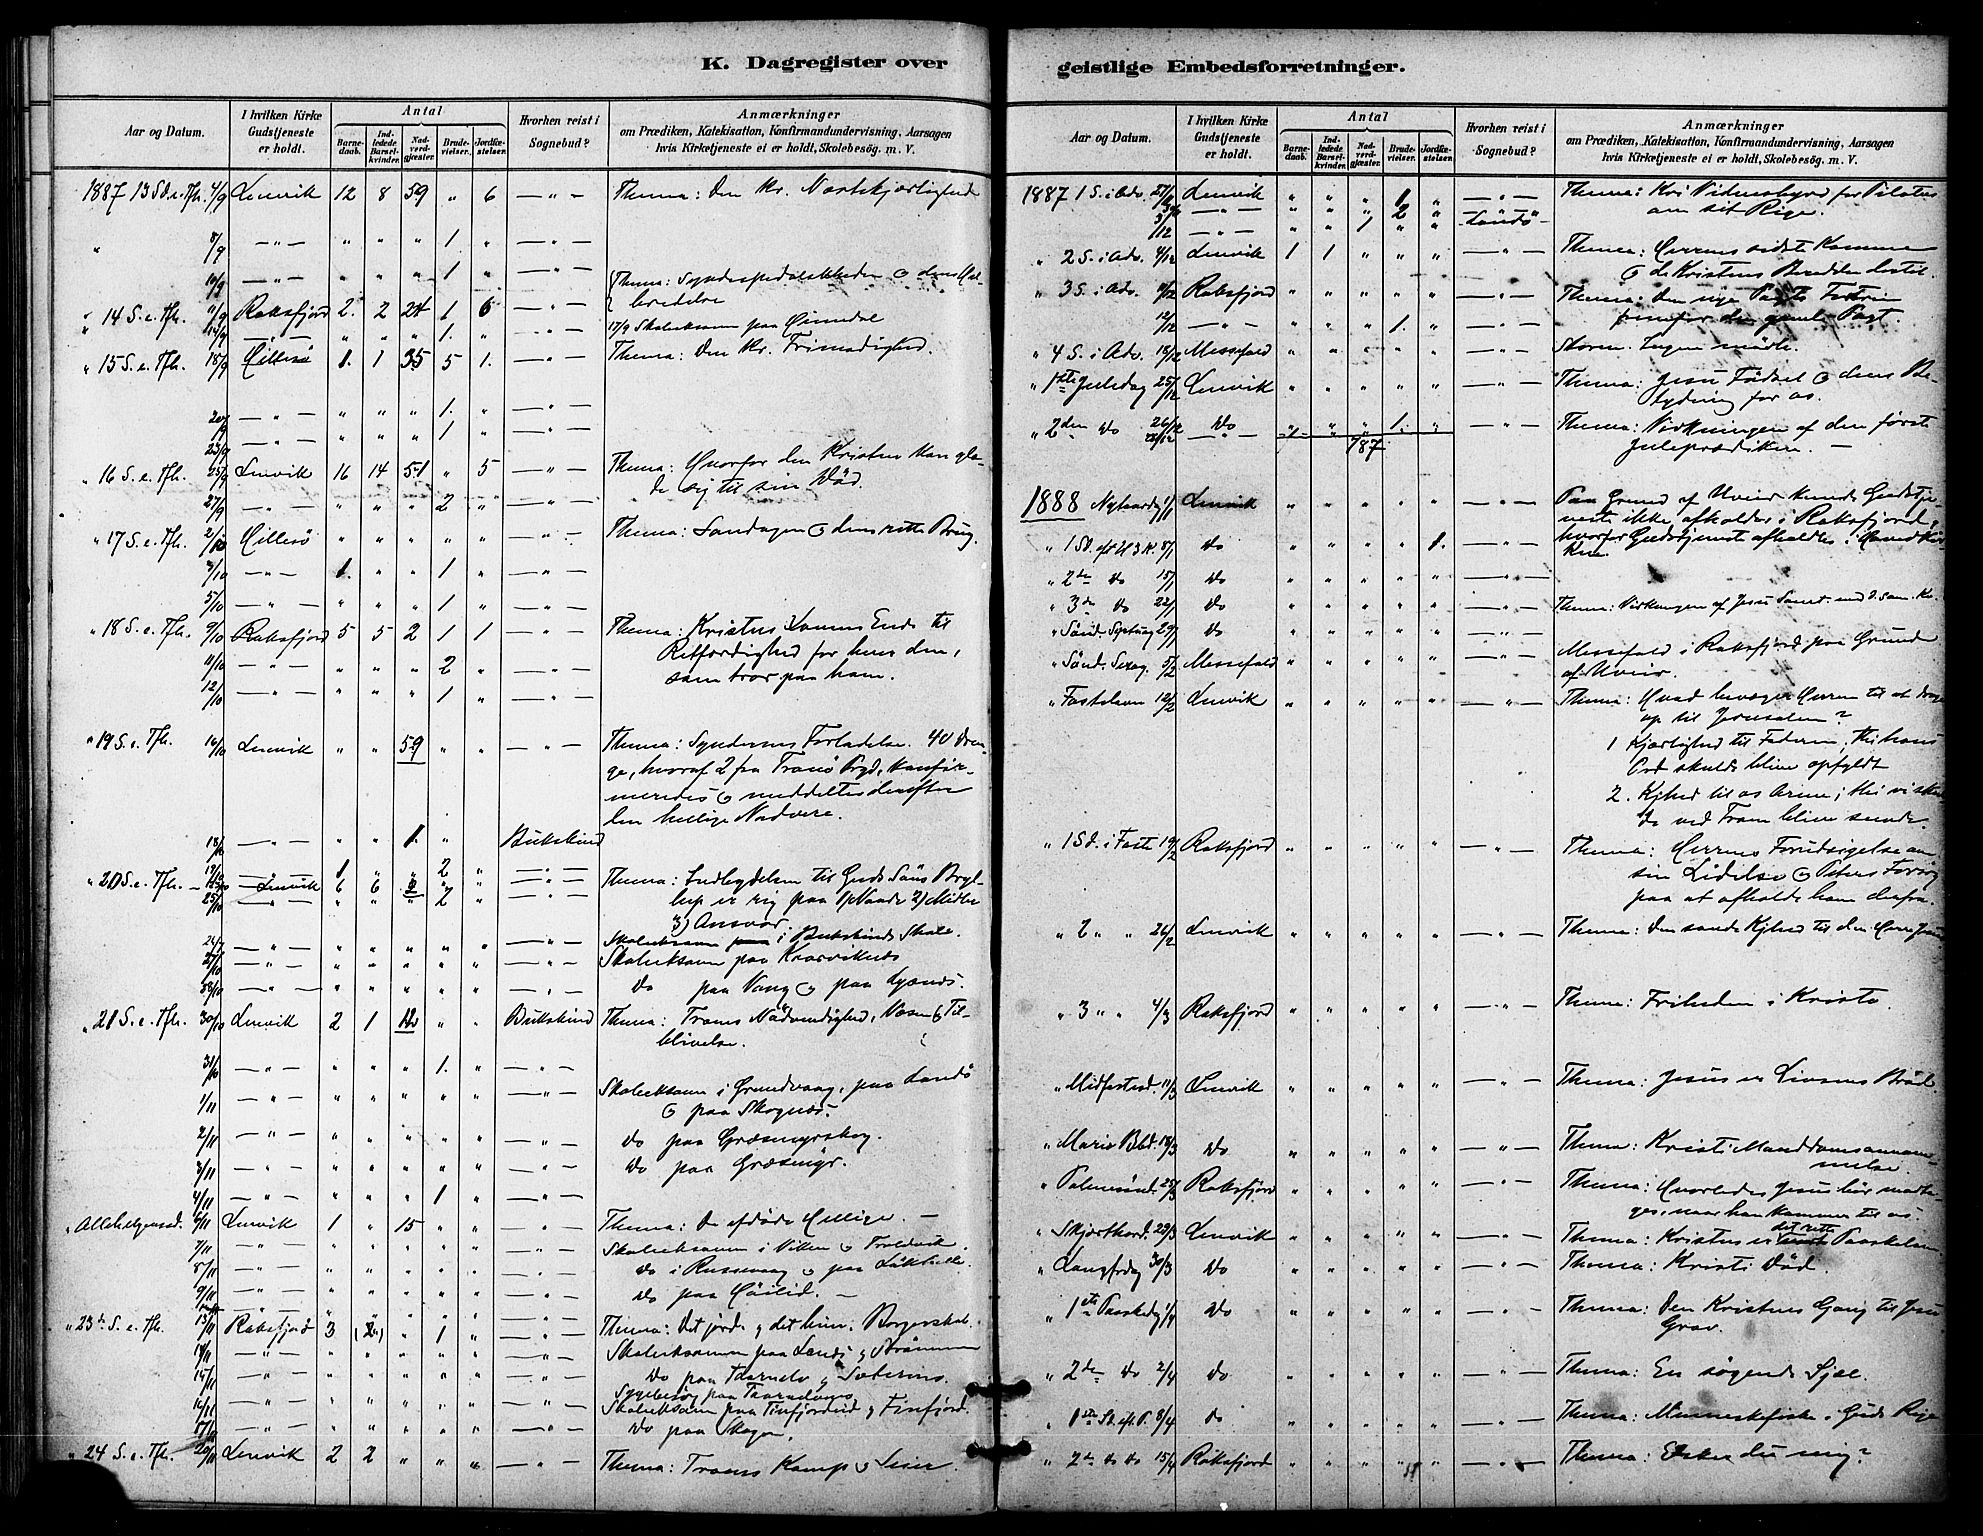 K. Dagregister over
Aar og Datum.
I hvilken Kirke Gudstjeneste er holdt.
Antal
Barnedaab.
Indledede Barselkvinder.
Nadverdgjester.
Brudevielser.
Jordfæstelser.
Hvorhen reist i Sognebud?
Anmærkninger
om Prædiken, Katekisation, Konfirmandundervisning, Aarsagen
hvis Kirketjeneste ei er holdt, Skolebesøg. m. V.
1887 13 Sd. e. Tfh. 4/9 Lenvik 12 8 59 " 6 — " — Thema: Den kr. Næstekjærlighed
" 8/9 — " — " " " 1. " — " —
10/9 — " — " " " 1 " — " — Thema: Syndespedalskheden og dens Hel-
bredelse
" 14 S. e. Tfh. 11/9 Roksfjord 2. 2 24 1 6 — " —
" 14/9 — " — " " " 1. " — " — 17/9 Skoleeksam paa Gismdal
" 15 S. e. Tfh. 18/9 Hillesø 1. 1 35 5 1. — " — Thema: Den kr. Frimodighed.
20/9 — " — " " " 1. " — " —
23/9 — " — " " " 1 " — " —
" 16 S. e. Tfh. 25/9 Lenvik 16 14 51 " 5 — " — Thema: Hvorfor den Kristen kan glæ-
de sig til sin Død.
27/9 — " — " " " 2 " — " —
" 17 S. e. Tfh. 2/10 Hillesø " " " " " — " — Thema: Søndagen og dens rette Brug.
3/10 — " — 1. " " 1 " — " —
5/10 — " — " " " 1. " — " —
" 18 S. e. Tfh. 9/10 Roksfjord 5 5 2 1 1 — " — Thema: Kristus Lovens Ende til
Retfærdighed for hver den,
som tror paa ham.
11/10 — " — " " " 2 " — " —
12/10 — " — " " " 1 " — " —
" 19 S. e. Tfh. 16/10 Lenvik " " 59 " " — " — Thema: Syndernes Forladelse. 40 Dren-
ge, hvoraf 2 fra Tranø Pgd, konfir-
meredes og meddeltes derefter
den hellige Nadvere.
18/10 — " — " " 1. " Bukskind
19/10 — " — 1 " " 2 " — " —
" 20 S. e. Tfh. Lenvik 6 6 2 " " — " — Thema: Indbydelsen til Guds Søns Bryl-
lup er rig paa 1) Naade 2) Midler
3) Ansvar
25/10 — " — " " " 2 " — " —
— " — " " " " " — " — Skoleeksam i Bukskinds Skole.
27/10 — " — " " " " " — " — Skoleeksam paa Kvarvikens
28/10 — " — " " " " " — " — Do paa Vang og paa Lysnes.
" 21 S. e. Tfh. 30/10 Lenvik 2 1 12 " " Bukskind Thema: Troens Nødvendighed, Væsen og Til-
blivelse.
31/10 — " — " " " 1. " — " —
1/11 — " — " " " " " — " — Skoleeksam i Grundvaag, paa Sandø
og paa Skognæs.
2/11 — " — " " " " " — " — Do paa Græsmyrskog.
3/11 — " — " " " " " — " — Do paa Græsmyr.
4/11 — " — " " " 1 " — " —
" Allehelgensd. 6/11 Lenvik 1 " 15 " " — " — Thema: De afdøde Hellige. —
7/11 — " — " " " " " — " — Skoleeksamen i Viken og Troldvik.
8/11 — " — " " " " " — " — Do i Russevaag og paa
9/11 — " — " " " " " — " — Do paa —
" 23de S. e. Tfh. 13/11 Roksfjord 3 (2) " 1 " — " — Thema: Det jord. og det him. Borgerskab.
14/11 — " — " " " " " — " — Skoleeksamen paa Sandø og Strømmen
15/11 — " — " " " " " — " — Do paa Taarnelv og
Sygebesøg paa
16/11 — " — " " " " " — " — Skoleeksam paa Finfjordeid og Finfjord.
17/11 — " — " " " " " — " — Do paa Skogen.
" 24 S. e. Tfh. 20/11 Lenvik 2 2 " " " — " — Thema: Troens Kamp og Seier
geistlige Embedsforretninger.
Aar og Datum.
I hvilken Kirke Gudstjeneste er holdt.
Antal
Barnedaab.
Indledede Barselkvinder.
Nadverdgjester.
Brudevielser.
Jordfæstelser.
Hvorhen reist i Sognebud?
Anmærkninger
om Prædiken, Katekisation, Konfirmandundervisning, Aarsagen
hvis Kirketjeneste ei er holdt, Skolebesøg. m. V.
1887 1 S. i Adv. 27/11 Lenvik " " " 1. " — " — Thema: Kri Vidnesbyrd for Pilatus
om sit Rige.
30/11 — " — " " " 2 " — " —
3/12 — " — " " 1 " " — Sandø —
" 2 S. i Adv. 4/12 Lenvik 1 1 " " " — " — Thema: Herrens sidste Komme
og de Kristnes Beredden dertil.
" 3 S. i Adv. 11/12 Roksfjord " " " " " — " — Thema: Den nye Pagts Fortrin
fremfor den gamle Pagt.
12/12 — " — " " " 1. " — " —
" 4 S. i Adv. 18/12 Messefald " " " " " — " — Storm. Ingen mødte.
" 1ste Juledag 25/12 Lenvik " " " " " — " — Thema: Jesu Fødsel og dens Be-
tydning for os.
" 2den Do 26/12 Do " " " 1. " — " — Thema: Virkningen af den første
Juleprædiken. —
28/12 — " —
787
1888 Nytaarsdg 1/1 Lenvik " " " " " — " — Paa Grund af Uveir kunde Gudstje-
neste ikke afholdes i Roksfjord,
hvorfor Gudstjeneste afholdtes i Hovedkir-
ken.
" 1 Sd. eft H 3 K. 8/1 Do " " " " 1. — " —
" 2de Do 15/1 Do " " " " " — " —
" 3de Do 22/1 Do " " " " " — " — Thema: Virkningen af Jesu Samt. med d. Sam. Kv.
" Sønd. Septuag 29/1 Do " " " " " — " —
" Sønd. Sexag. 5/2 Messefald " " " " " — " — Messefald i Roksfjord paa Grund
af Uveir.
" Fastelavn 12/2 Lenvik " " " " " — " — Thema: Hvad bevæger Herren til at drage
op til Jerusalem?
1 Kjærlighed til Faderen, thi hans
Ord skulde blive opfyldt
2. Kjhed til os Arme; thi vi skul-
de ved Troen blive seende.
" 1 Sd. i Faste 19/2 Roksfjord " " " " " — " — Thema: Herrens Forudsigelse om
sin Lidelse og Peters Forsøg
paa at afholde ham derfra.
" 2 " " 26/2 Lenvik " " " " " — " — Thema: Den sande Kjhed til den Herre Jesus
" 3 " " 4/3 Roksfjord " " " " " — " — Thema: Friheden i Kristo
" Midfastesd. 11/3 Lenvik " " " " " — " — Thema: Jesus er Livsens Brød.
" Mariæ Bbd. 18/3 Do " " " " " — " — Thema: Kristi Manddomsannam-
melse.
" Palmesønd. 25/3 Roksfjord " " " " " — " — Thema: Hvorledes Jesus bør modta-
ges, naar han kommer til os.
" Skjærthorsd. 29/3 Lenvik " " " " " — " — Thema: Kristus er det rette Paaskelam
" Langfredag 30/3 Do " " " " " — " — Thema: Kristi Død.
" 1ste Paaskedg 1/4 Do " " " " " — " — Thema: Den Kristnes Gang til Jesu
Grav.
" 2den Do 2/4 Do " " " " " — " — Thema: En søgende Sjæl.
" 1ste Sd. eft P. 8/4 do " " " " " — " — Thema: Menneskefiske i Guds Rige
" 2de do do 15/4 Roksfjord " " " " " — " — Thema: Elsker du mig?